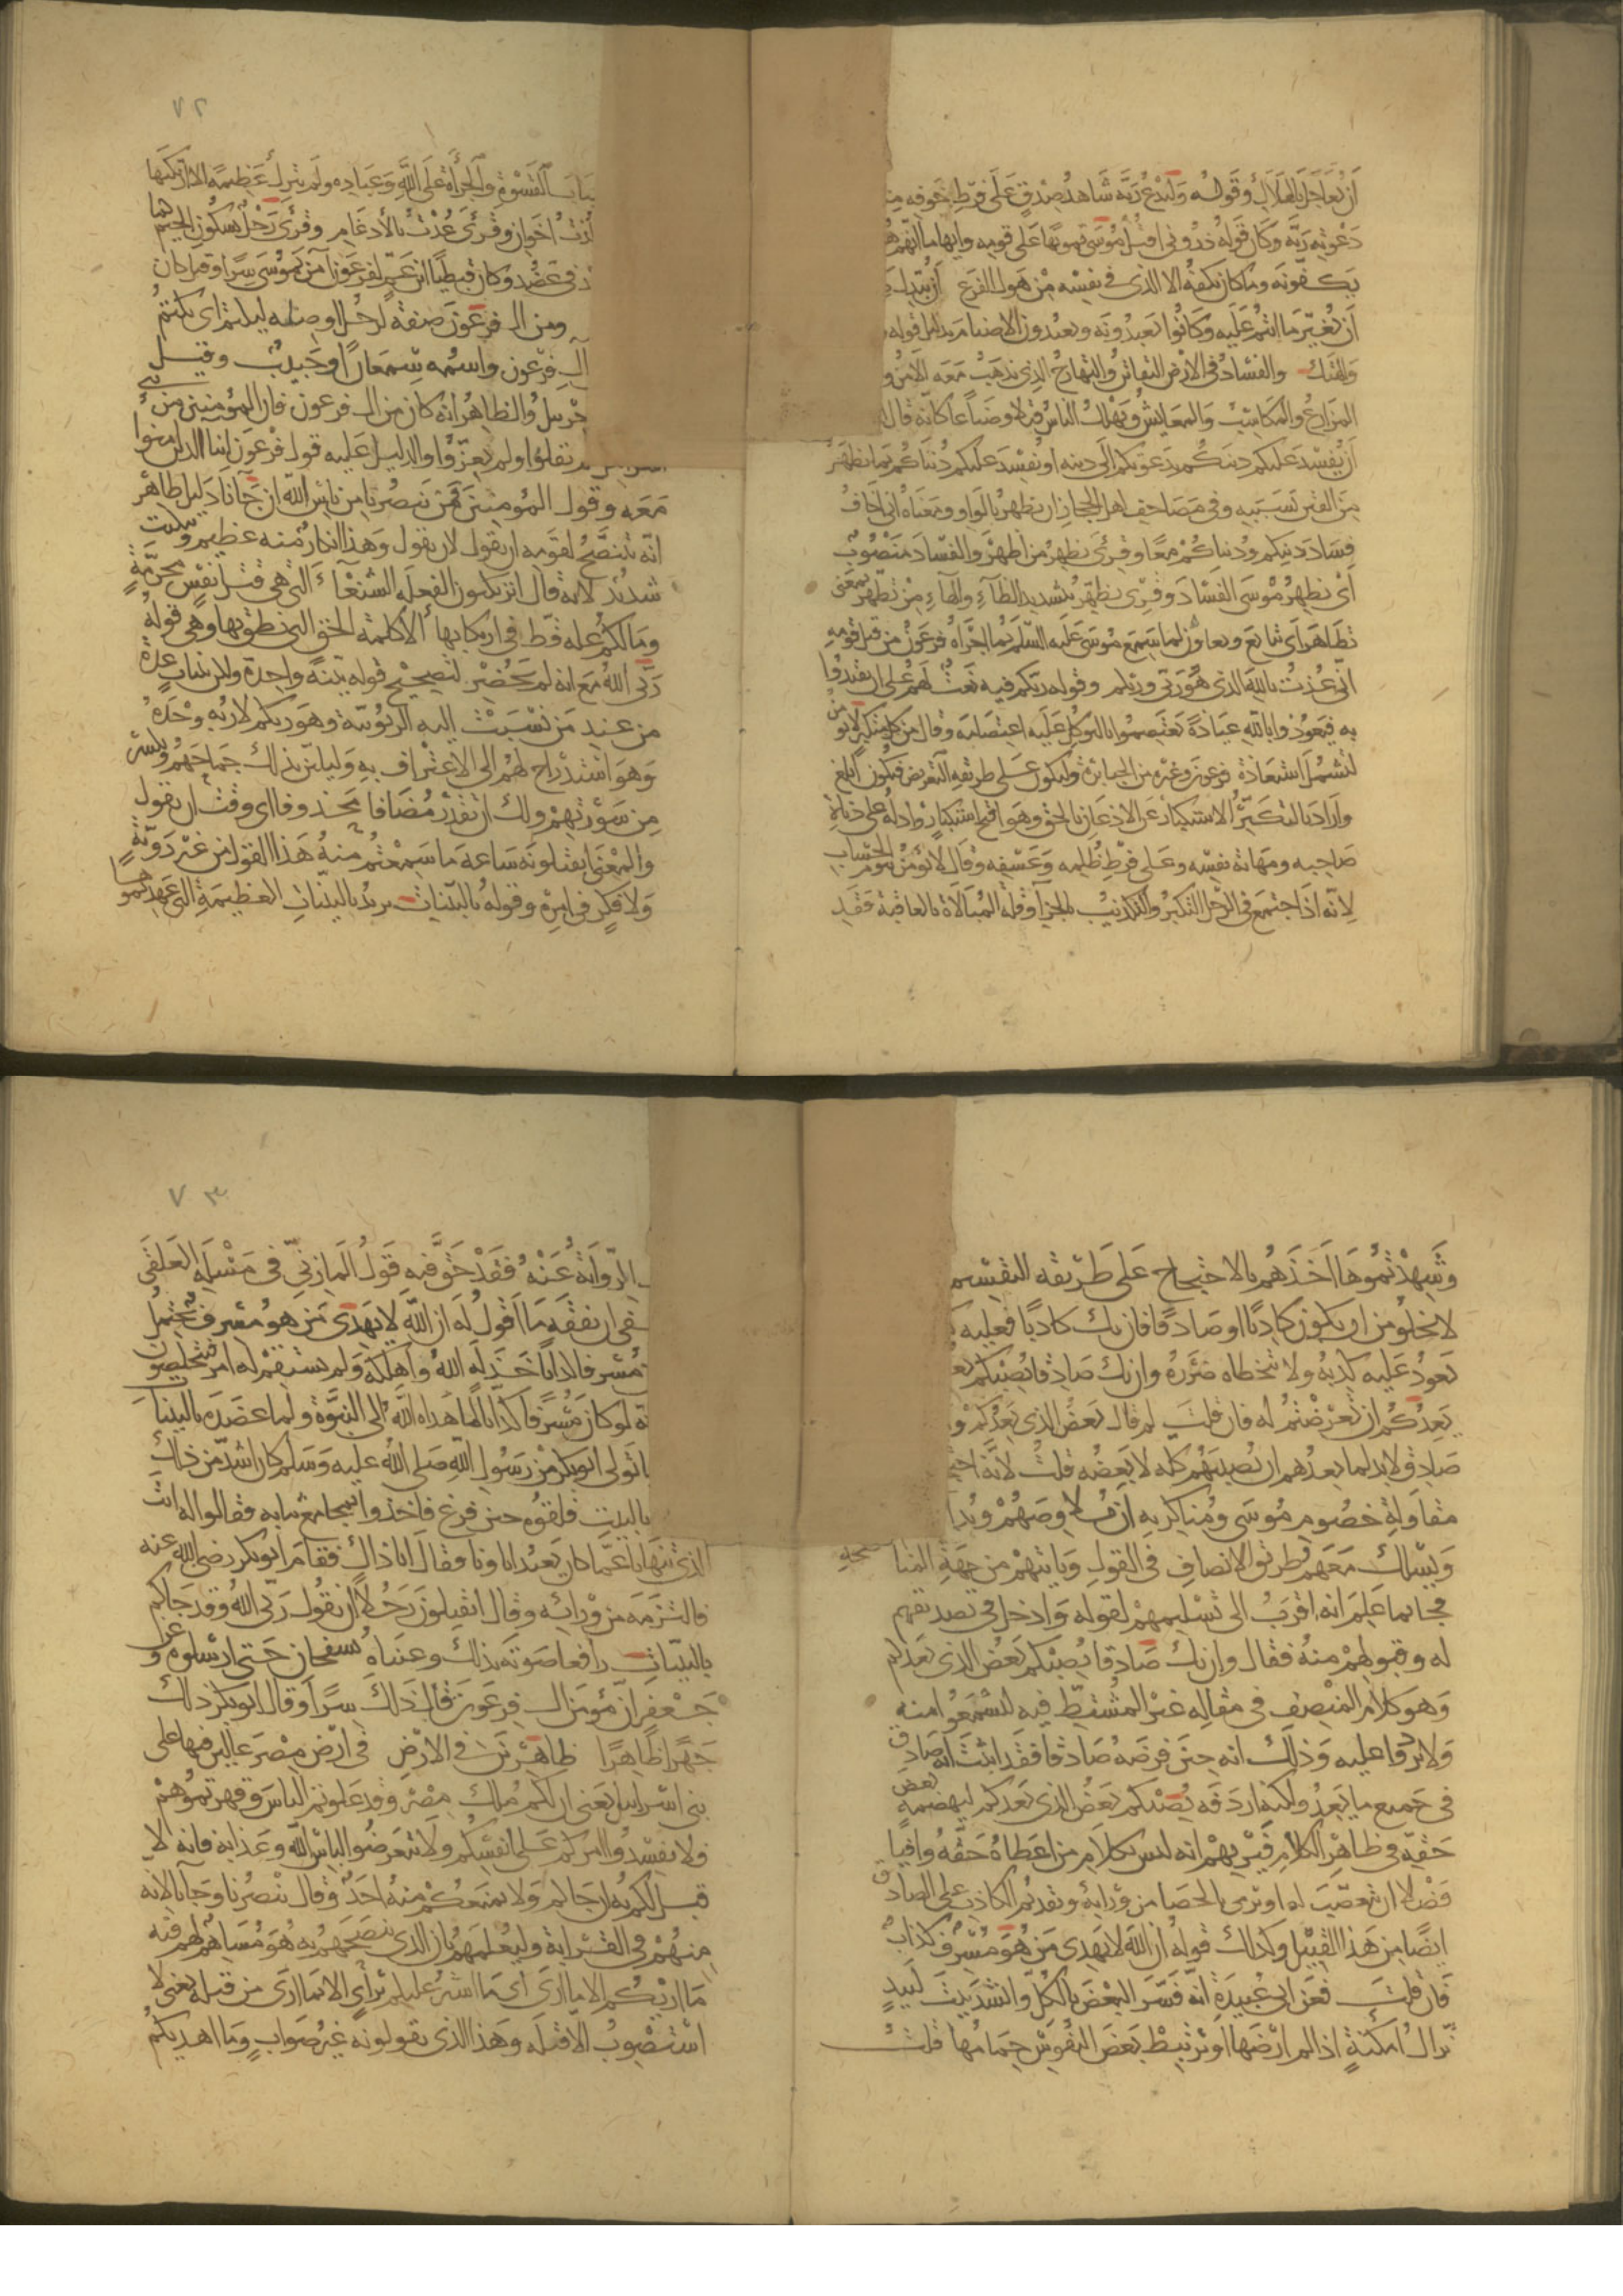 أن يعاجل بالهلاك وقوله وليدع ربه شاهد صدق على فرط خوفه منه
دعوته ربه وكان قوله ذروني اقتل موسى تمويها على قومه وايهاما انهم هم
يكفونه وما كان يكفه الا ما في نفسه من هول الفزع أن يبدل
أن يغير ما انتم عليه وكانوا يعبدونه ويعبدون الاصنام بدليل قوله
والفساد في الارض التقاتل والتهارج الذي يذهب معه الامن و
المزارع والمكاسب والمعايش ويهلك الناس قتلا وضياعا كانه قال
أن يفسد عليكم دينكم بدعوتكم الى دينه او يفسد عليكم دنياكم بما يظهر
من الفتن بسببه وفي مصاحف اهل الحجاز وان يظهر بالواو ومعناه اني اخاف
فساد دينكم ودنياكم معا وقرئ يظهر من اظهر والفساد منصوب
اي يظهر موسى الفساد وقرئ يظهر بتشديد الظاء والهاء من تظهر بمعنى
تظاهر اي تتابع وتعاون لما سمع موسى عليه السلم بما اجراه فرعون من قتله قومه
اني عذت بالله الذي هو ربي وربكم وقوله وربكم فيه بعث لهم على ان يقتدوا
به فيعوذوا بالله عياذه ويعتصموا بالتوكل عليه اعتصامه وقال من كل متكبر لا يؤمن
لتشمل استعاذته فرعون وغيره من الجبابرة وليكون على طريقة التعريض فيكون ابلغ
واراد بالتكبر الاستكبار عن الاذعان بالحق وهو اقبح استكبار وادله على دناءة
صاحبه ومهانة نفسه وعلى فرط ظلمه وعسفه وقال لا يؤمن بيوم الحساب
لانه اذا اجتمع في الرجل التكبر والتكذيب بالجزآ وقلة المبالاة بالعاقبة فقد
٧٢
القسوة والجرأة على الله وعباده ولم يترك عظيمة الا ارتكبها
اخوان وقرئ عدت بالادغام وقرئ رجل بسكون الجيم كما
في عضد وكان قبطيا ابن عم لفرعون آمن بموسى سرا وقيل كان
ومن ال فرعون صفة لرجل او صله ليكتم اي يكتم
آل فرعون واسمه سمعان او حبيب وقيل
حزبيل والظاهر انه كان من ال فرعون فان المؤمنين من بني
لم يقلوا ولم يعزوا والدليل عليه قول فرعون ابنا الذين امنوا
معه وقول المؤمن فمن ينصرنا من باس الله ان جآنا دليل ظاهر
انه يتنصح لقومه ان يقول لان يقول وهذا انكار منه عظيم وتبكيت
شديد كانه قال اترتكبون الفعلة الشنعآء التي هي قتل نفس محرمة
وما لكم علة قط في ارتكابها الا كلمة الحق التي نطق بها وهي قوله
ربي الله مع انه لم يحضر لتصحيح قوله بينة واحدة ولكن بينات عدة
من عند من نسبت اليه الربوبية وهو ربكم لا ربه وحده
وهو استدراج لهم الى الاعتراف به وليلين بذلك جماحهم ويكسر
من سورتهم ولك ان تقدر مضافا محذوفا اي وقت ان يقول
والمعنى اتقتلونه ساعة ما سمعتم منه هذا القول من غير روية
ولا فكر في امره وقوله بالبينات يريد بالبينات العظيمة التي عهدتموها
وشهدتموها اخذهم بالاحتجاج على طريقة التقسيم
لا يخلو من ان يكون كاذبا او صادقا فان يك كاذبا فعليه
يعود عليه كذبه ولا يتخطاه ضرره وان يك صادقا يصبكم بعض
يعدكم ان تعرضتم له فان قلت لم قال بعض الذي يعدكم و
صادق لابد لما يعدهم ان يصيبهم كله لا بعضه قلت لانه احتاج
مقاولة خصوم موسى ومناكريه ان يلاوصهم ويدا
ويسلك معهم طريق الانصاف في القول ويأتيهم من جهة المناصحة
فجا بما علم انه اقرب الى تسليمهم لقوله وادخل في تصديقهم
له وقبولهم منه فقال وان يك صادقا يصبكم بعض الذي يعدكم
وهو كلام المنصف في مقاله غير المشتط فيه ليسمعوا منه
ولا يردوا عليه وذلك انه حين فرضه صادقا فقد اثبت انه صادق
في جميع ما يعد ولكنه اردفه يصبكم بعض الذي يعدكم ليهضمه بعض
حقه في ظاهر الكلام فيريهم انه ليس بكلام من اعطاه حقه وافيا
فضلا ان يتعصب له او يرمي بالحصا من ورائه وتقديم الكاذب على الصادق
ايضا من هذا القبيل وكذلك قوله ان الله لا يهدي من هو مسرف كذاب
فان قلت فعن ابي عبيدة انه فسر البعض بالكل وانشد بيت لبيد
تراك امكنة اذا لم ارضها او يرتبط بعض النفوس حمامها قلت
٧٣
الرواية عنه فقد حق فيه قول المازني في مسئلة العلقى
ان يفقه ما اقول له ان الله لا يهدي من هو مسرف يحتمل
مسرفا كذابا خذله الله واهلكه ولم يستقم له امر فتتخلصون
لو كان مسرفا كذابا لما هداه الله الى النبوة ولما عضده بالبينات
ما تولى ابو بكر من رسول الله صلى الله عليه وسلم كان اشد من ذلك
بالبيت فلقوه حين فرغ فاخذوا بمجامع ثيابه فقالوا له انت
الذي تنهانا عما كان يعبد اباونا فقال انا ذاك فقام ابو بكر رضي الله عنه
فالتزمه من ورائه وقال اتقتلون رجلا ان يقول ربي الله وقد جاكم
بالبينات رافعا صوته بذلك وعيناه تسفحان حتى ارسلوه وعن
جعفر ان مؤمن ال فرعون قال ذلك سرا وقال ابو بكر ذلك
جهرا ظاهرا ظاهرين في الارض في ارض مصر عالين فيها على
بني اسرايل يعني ان لكم ملك مصر وقد علوتم الناس وقهرتموهم
فلا تفسدوا امركم على انفسكم ولا تتعرضوا لباس الله وعذابه فانه لا
قبل لكم به ان جاكم ولا يمنعكم منه احد وقال ينصرنا وجآنا لانه
منهم في القرابة وليعلمهم بان الذي ينصحهم به هو مساهم لهم فيه
ما اريكم الا ما ارى اي ما اشير عليكم براي الا بما ارى من قتله يعني لا
استصوب الا قتله وهذا الذي تقولونه غير صواب وما اهديكم